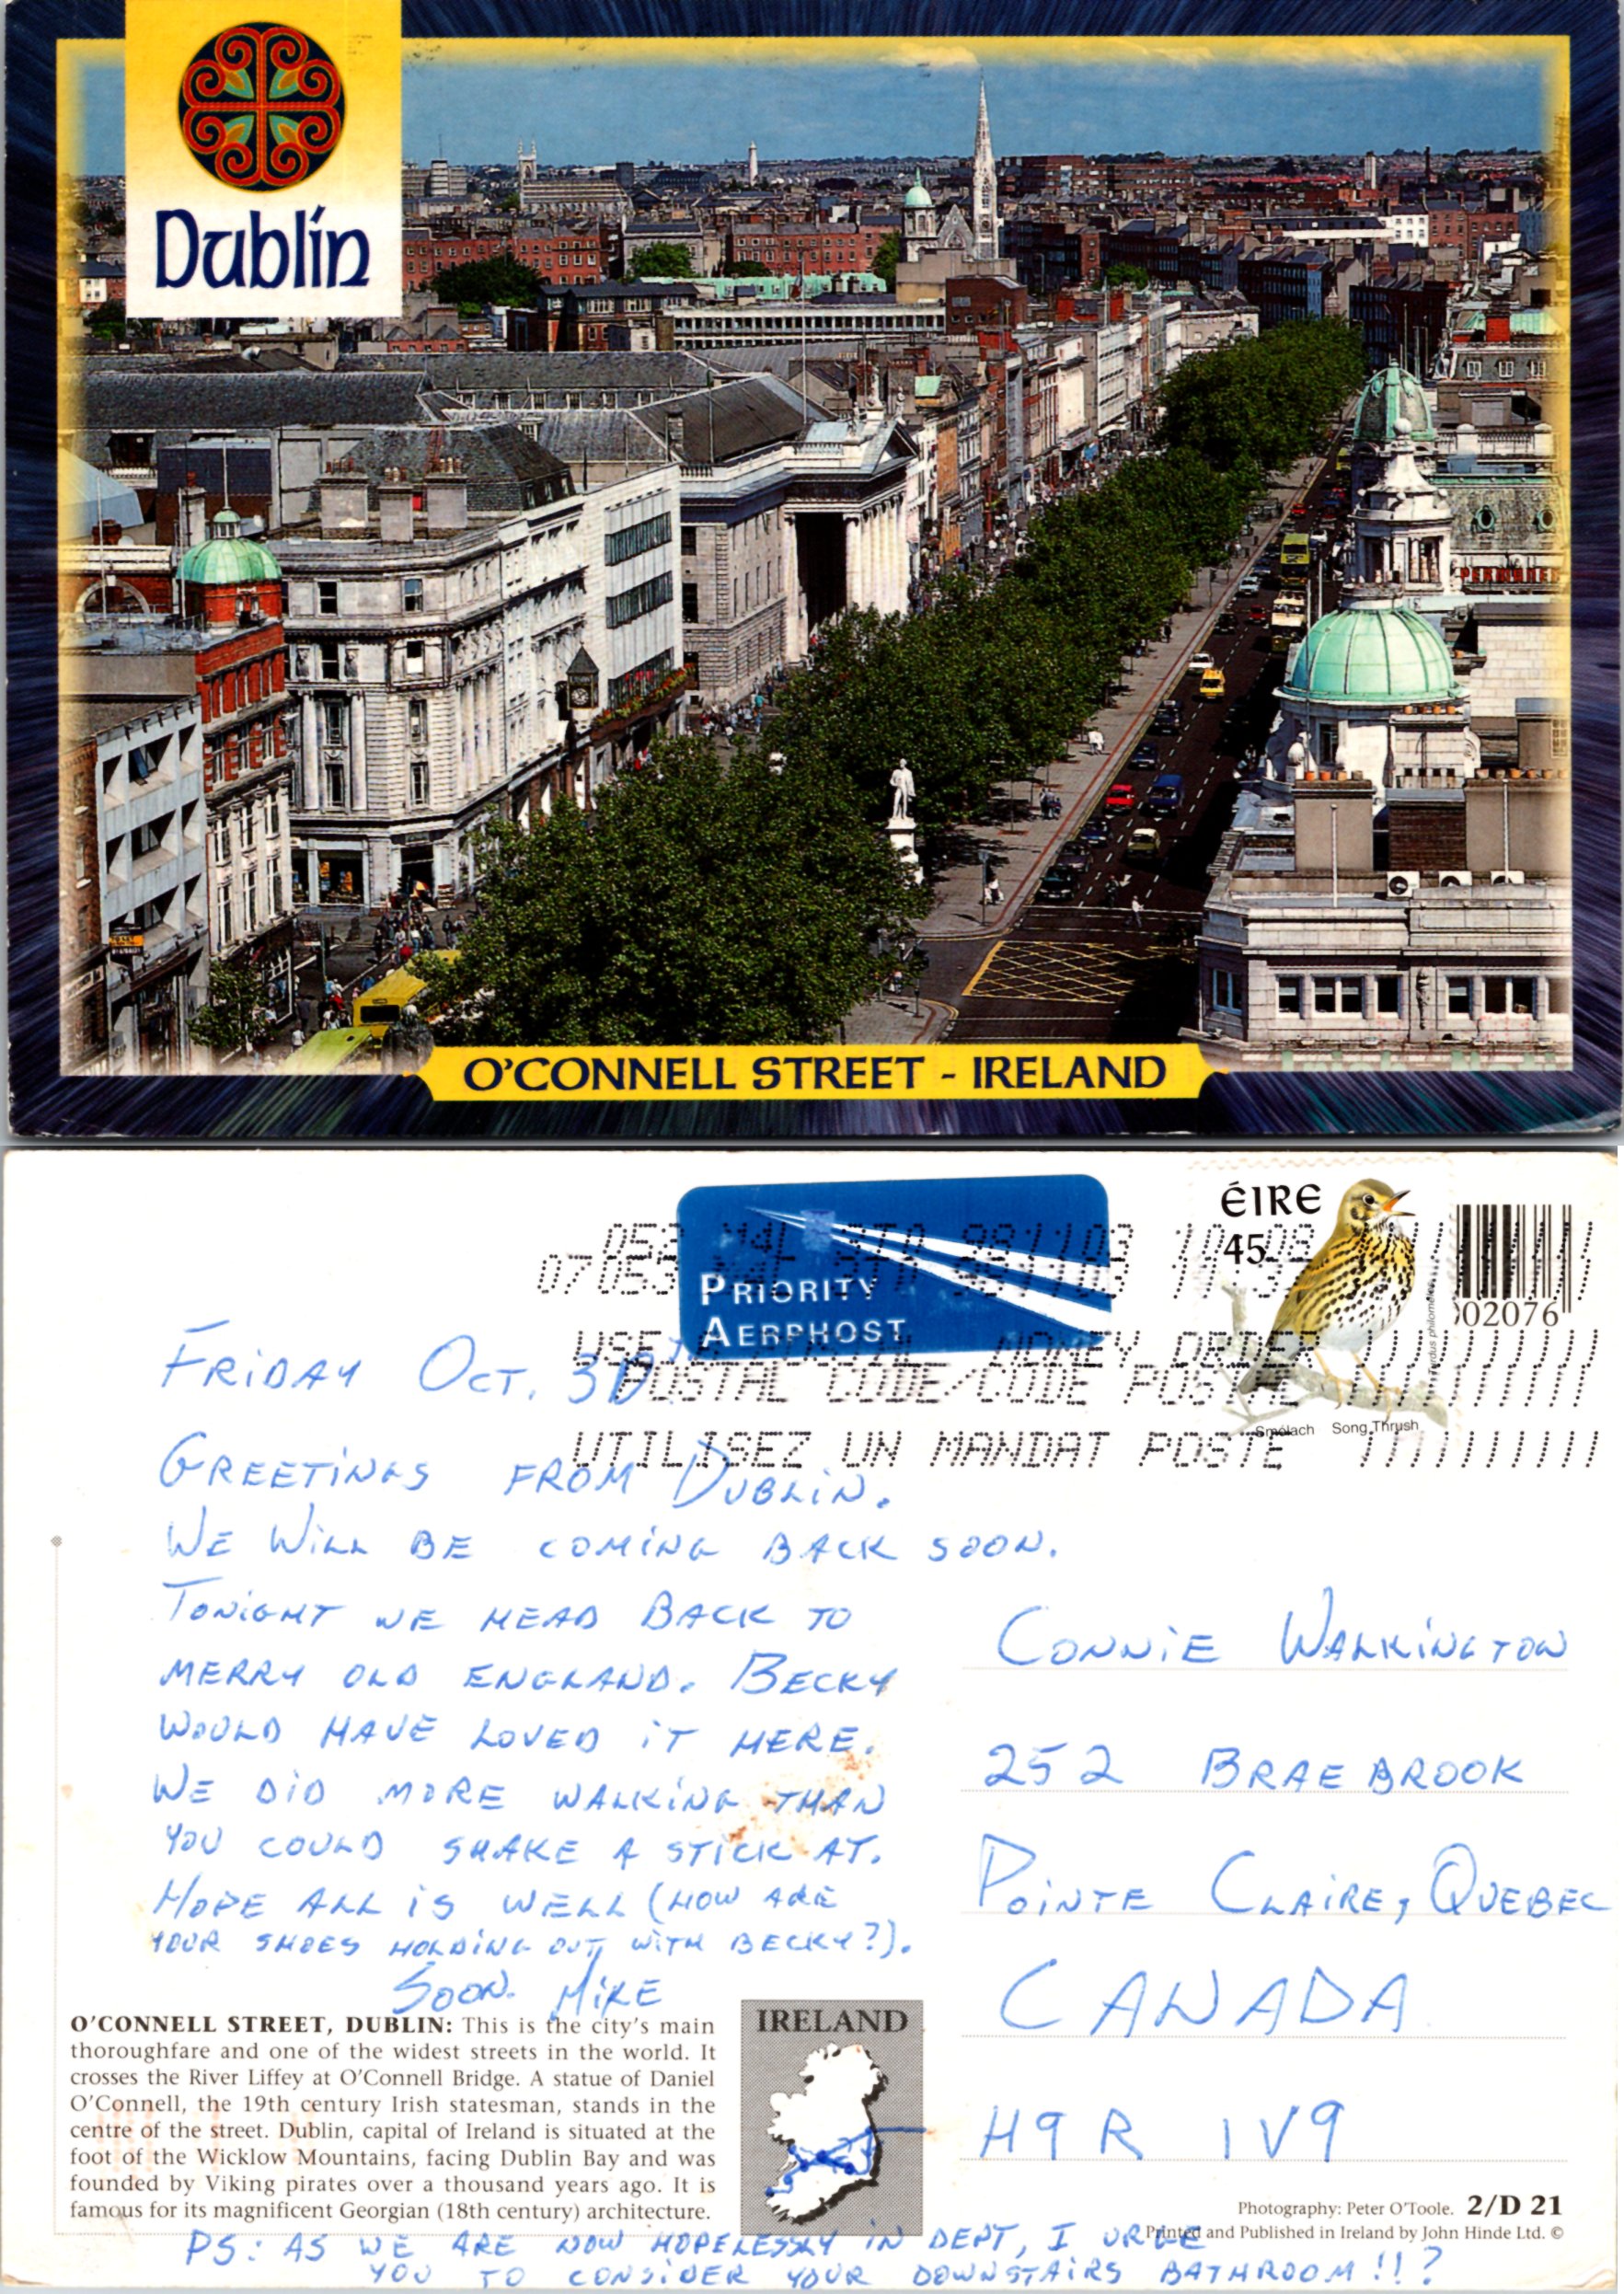 Dublin
O'CONNELL STREET - IRELAND
PRIORITY
AERPHOST
ÉIRE
45
02076
Smólach Song Thrush
POSTAL CODE/CODE POSTAL
UTILISEZ UN MANDAT POSTE
FRIDAY OCT. 30TH
GREETINGS FROM DUBLIN.
WE WILL BE COMING BACK SOON.
TONIGHT WE HEAD BACK TO
MERRY OLD ENGLAND. BECKY
WOULD HAVE LOVED IT HERE.
WE DID MORE WALKING THAN
YOU COULD SHAKE A STICK AT.
HOPE ALL IS WELL (HOW ARE
YOUR SHOES HOLDING OUT, WITH BECKY?).
SOON. MIKE
CONNIE WALKINGTON
252 BRAEBROOK
POINTE CLAIRE, QUEBEC
CANADA
H9R 1V9
O'CONNELL STREET, DUBLIN: This is the city's main
thoroughfare and one of the widest streets in the world. It
crosses the River Liffey at O'Connell Bridge. A statue of Daniel
O'Connell, the 19th century Irish statesman, stands in the
centre of the street. Dublin, capital of Ireland is situated at the
foot of the Wicklow Mountains, facing Dublin Bay and was
founded by Viking pirates over a thousand years ago. It is
famous for its magnificent Georgian (18th century) architecture.
IRELAND
Photography: Peter O'Toole. 2/D 21
Printed and Published in Ireland by John Hinde Ltd. ©
PS: AS WE ARE NOW HOPELESSLY IN DEPT, I URGE
YOU TO CONSIDER YOUR DOWNSTAIRS BATHROOM!!?